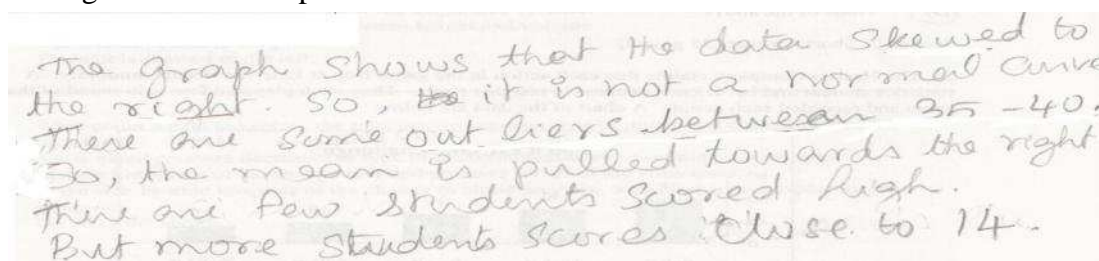 The graph shows that the data skewed to
the right. So, it is not a normal curve
There are some outliers between 35 - 40.
So, the mean is pulled towards the right
There are few students scored high.
But more students scores close to 14.